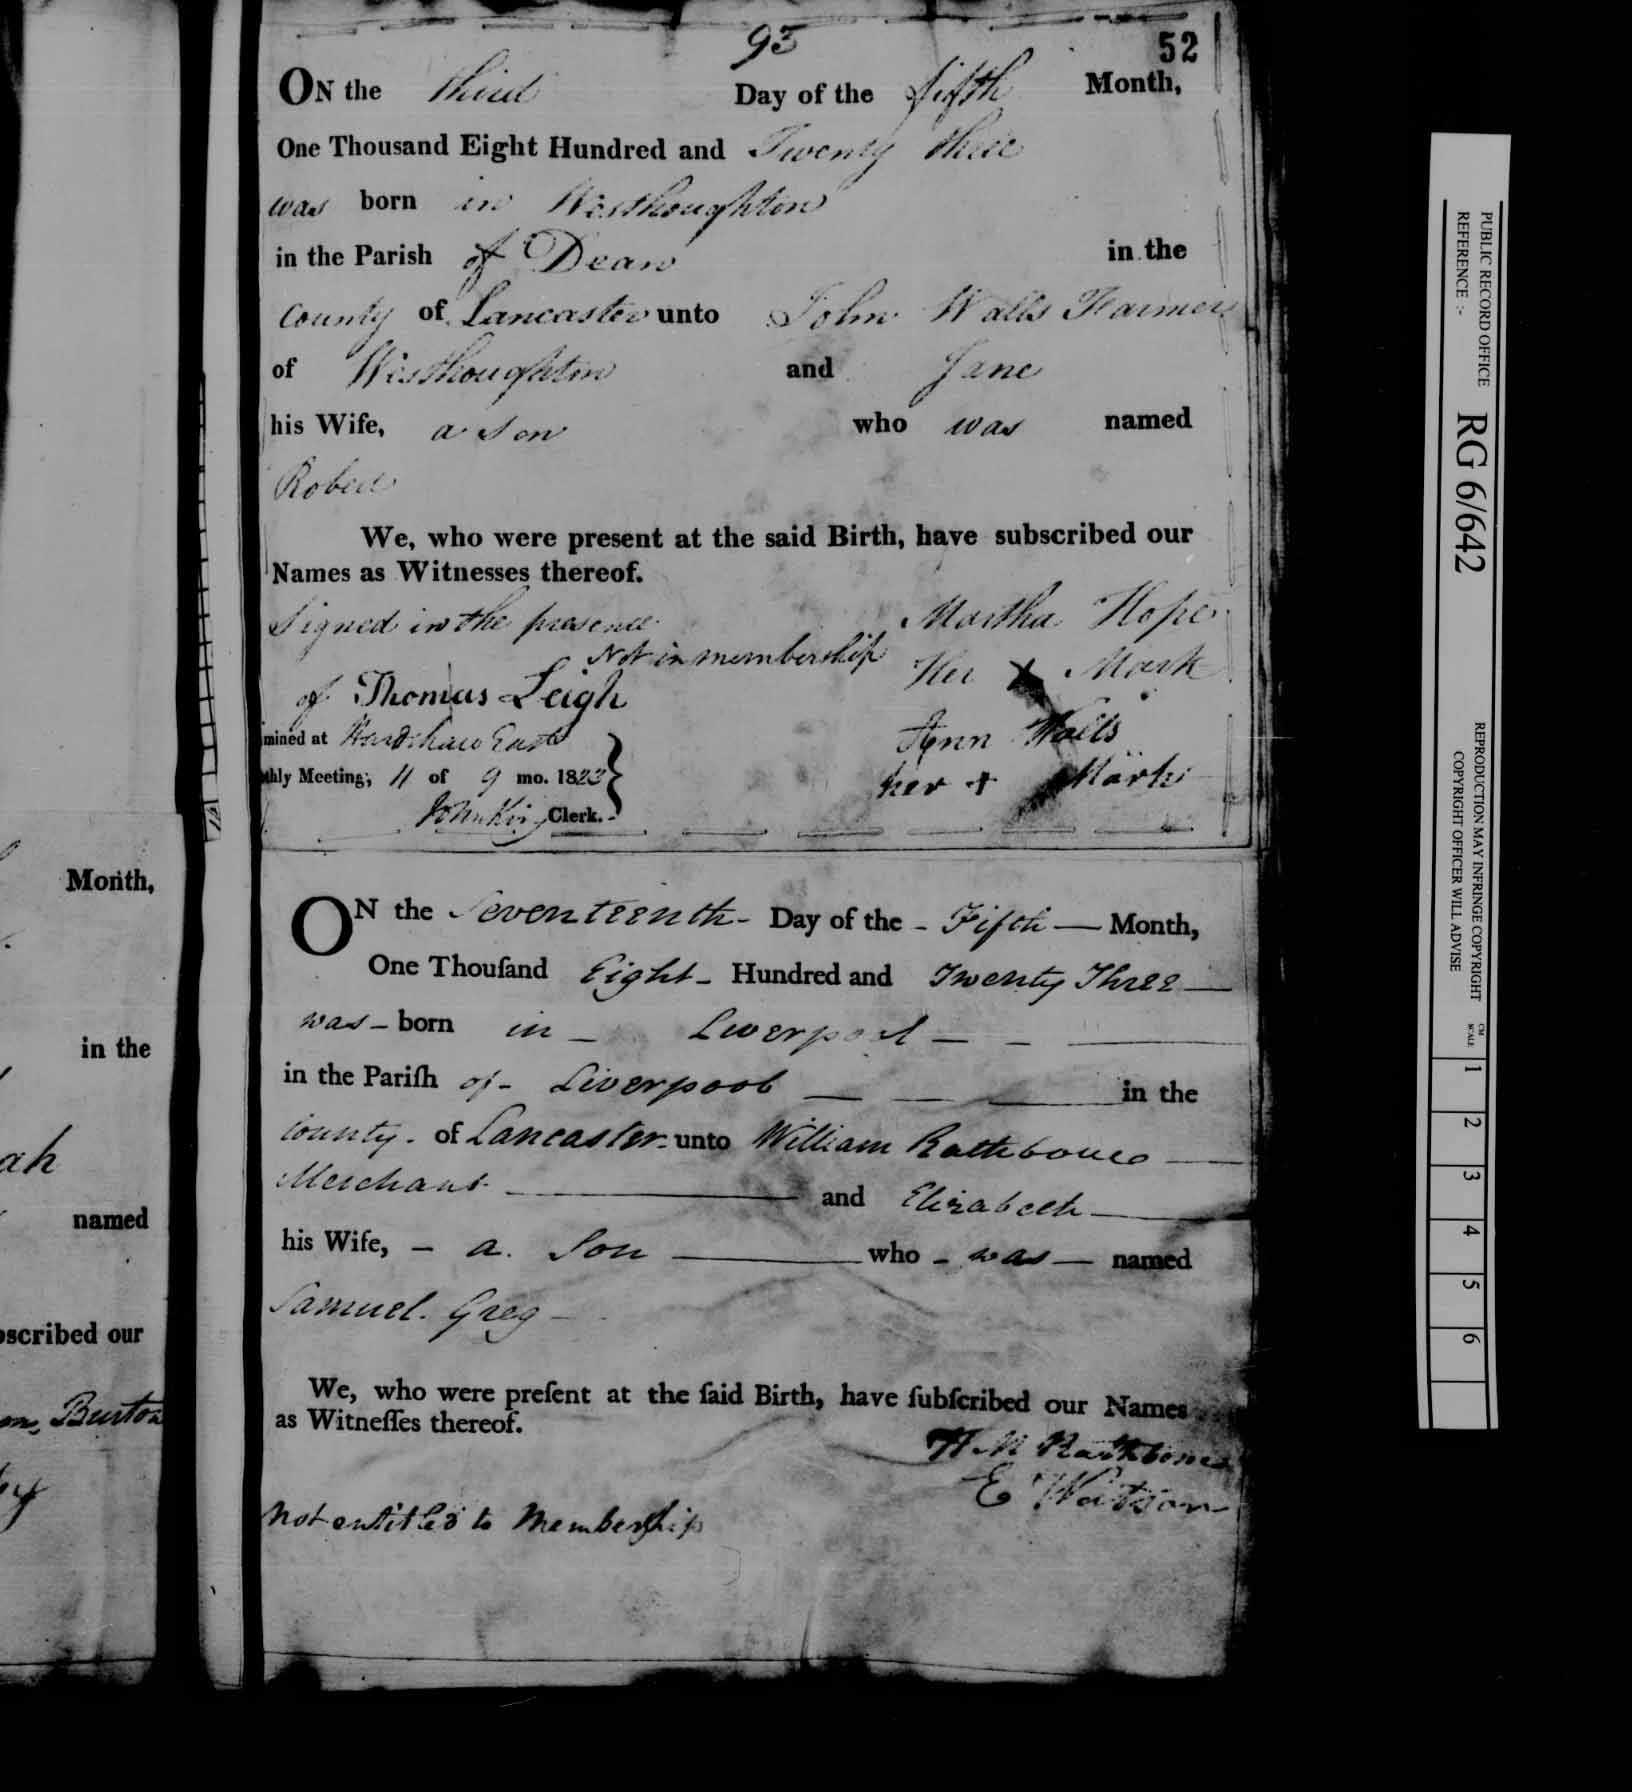 93
52
ON the third Day of the fifth Month,
One Thousand Eight Hundred and Twenty three
was born in Westhoughton
in the Parish of Dean in the
County of Lancaster unto John Walls Farmer
of Westhoughton and Jane
his Wife, a Son who was named
Robert
We, who were present at the said Birth, have subscribed our
Names as Witnesses thereof.
Signed in the presence Martha Hope
Not in membership Her X Mark
of Thomas Leigh
mined at Hardshaw East Ann Walls
thly Meeting, 11 of 9 mo. 1823 her + Mark
John King Clerk.
ON the Seventeenth - Day of the - Fifth — Month,
One Thouſand Eight - Hundred and Twenty Three —
was - born in - Liverpool — - —
in the Pariſh of - Liverpool — — — in the
County - of Lancaster - unto William Rathbone —
Merchant — and Elizabeth —
his Wife, - a Son — who - was — named
Samuel Greg -
We, who were preſent at the ſaid Birth, have ſubſcribed our Names
as Witneſſes thereof.
W M Rathbone
E Watson
Not entitled to Membership
Month,
in the
ah
named
scribed our
Burton
PUBLIC RECORD OFFICE
REFERENCE :-
RG 6/642
REPRODUCTION MAY INFRINGE COPYRIGHT
COPYRIGHT OFFICER WILL ADVISE
CM
SCALE
1
2
3
4
5
6